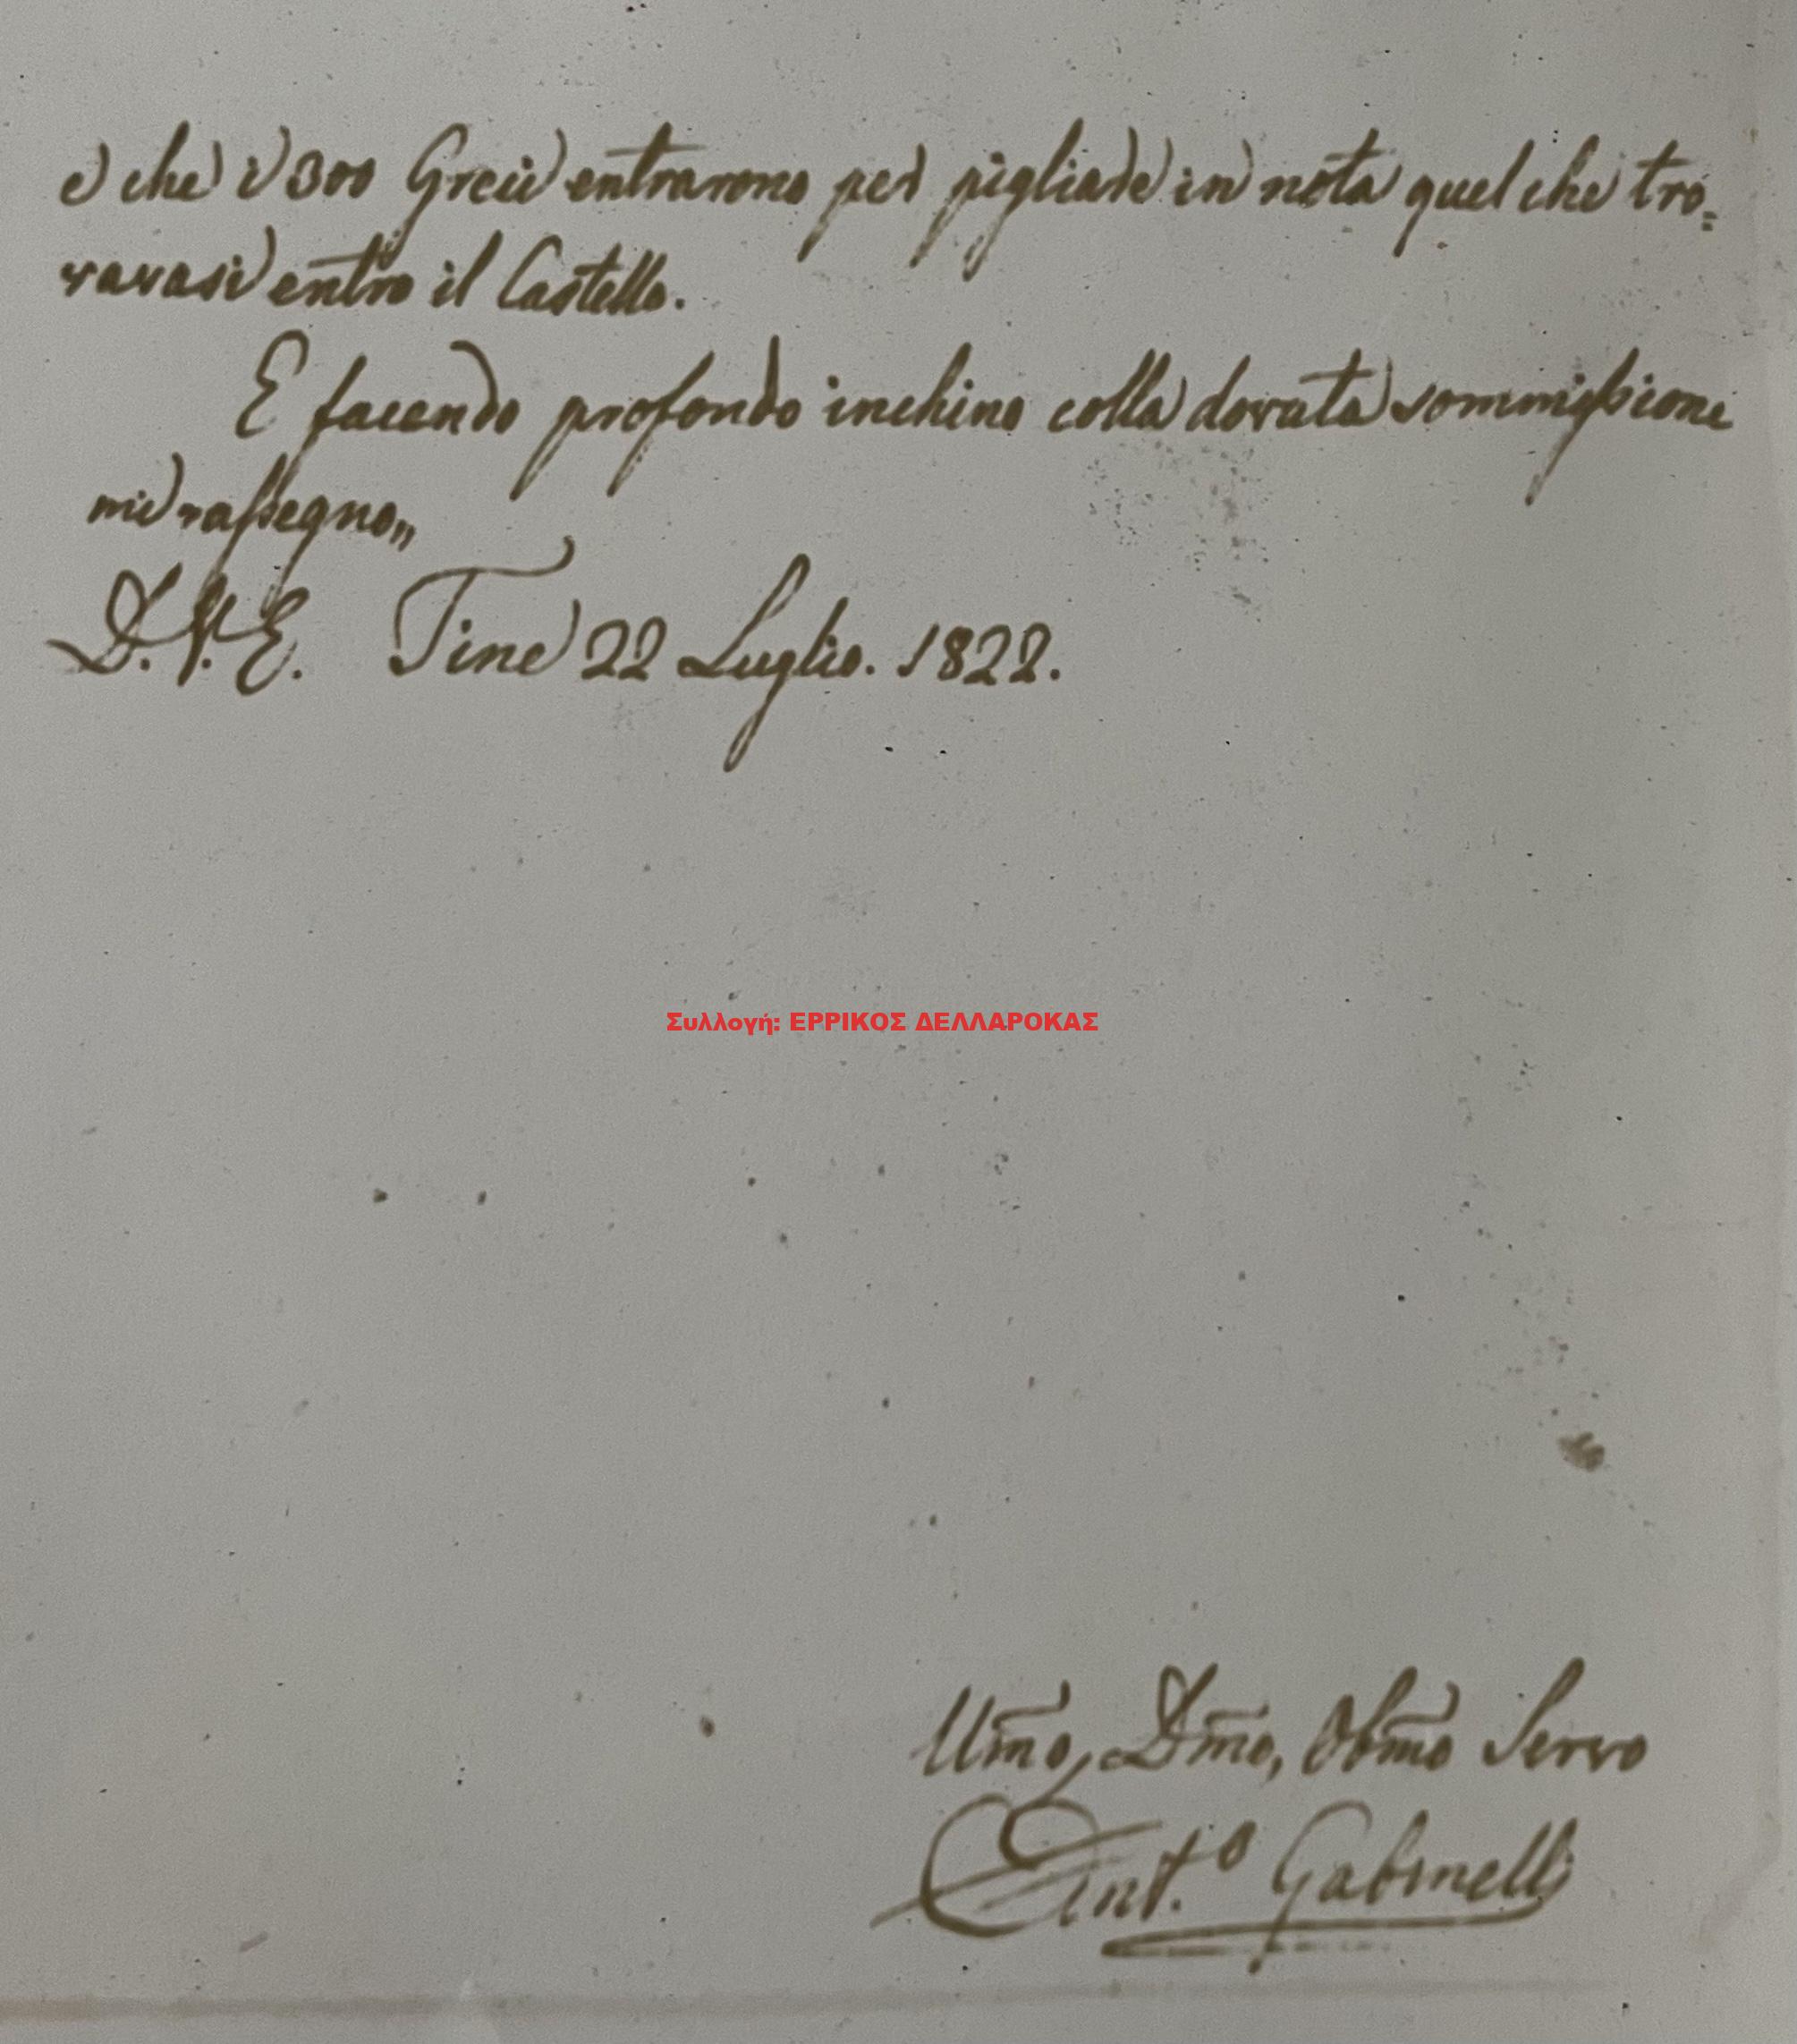 e che i 300 Greci entrarono per pigliare in nota quel che tro=
vavasi entro il Castello.
E facendo profondo inchino colla dovuta sommissione
mi rassegno,,
D. V. E. Tine 22 Luglio. 1822.
Συλλογή: ΕΡΡΙΚΟΣ ΔΕΛΛΑΡΟΚΑΣ
Umo, Dmo, Obmo Servo
Ant.º Gabinelli